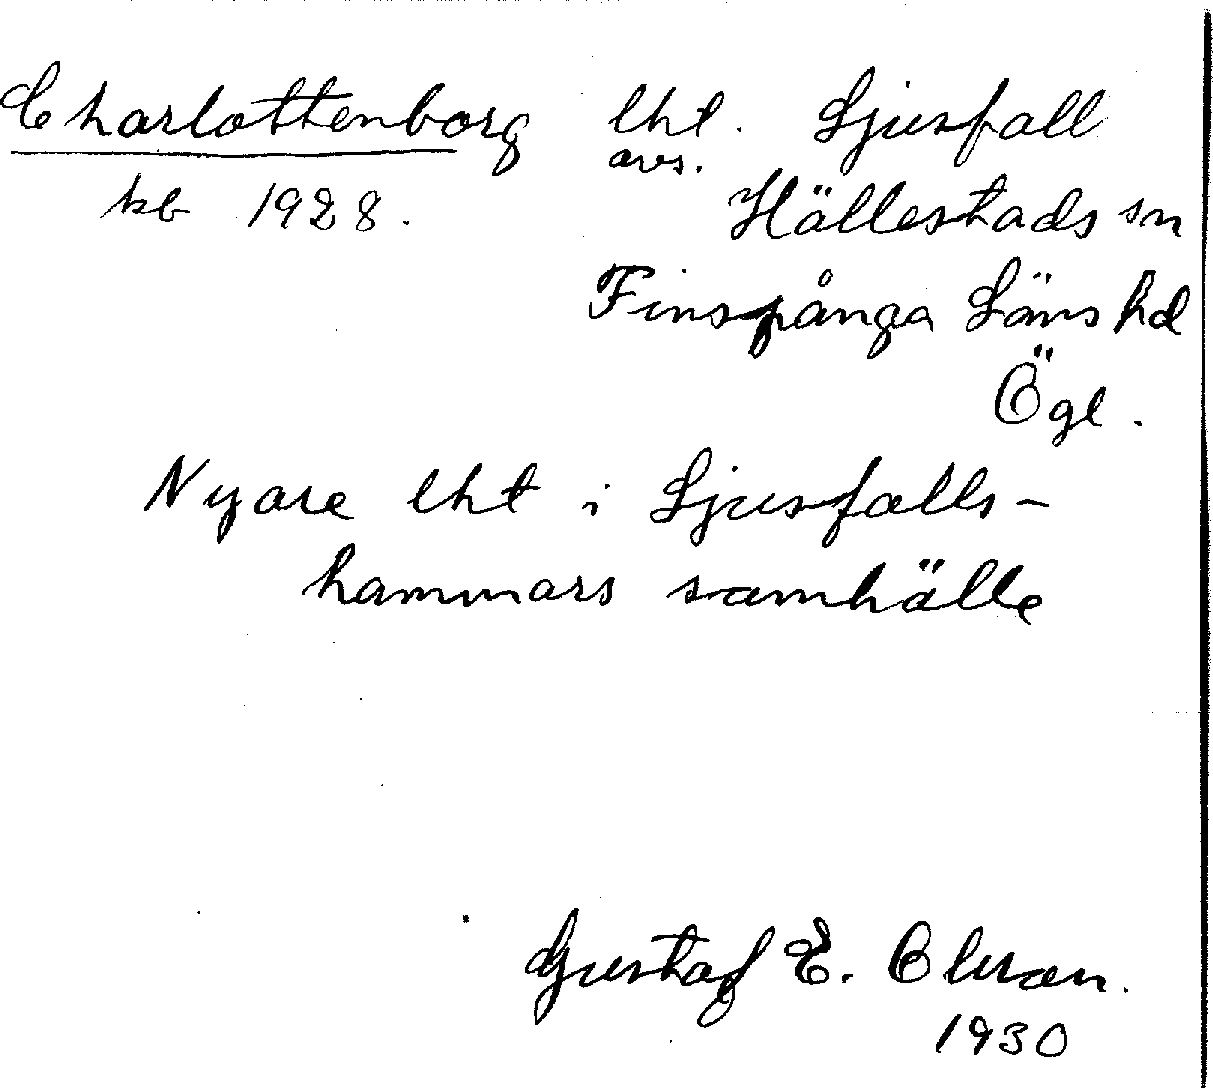 Charlottenborg lht. Ljusfall
avs.
kb 1928. Hällestads sn
Finspånga Läns hd
Ögl.
Nyare lht i Ljusfalls-
hammars samhälle
Gustaf E. Olsson.
1930